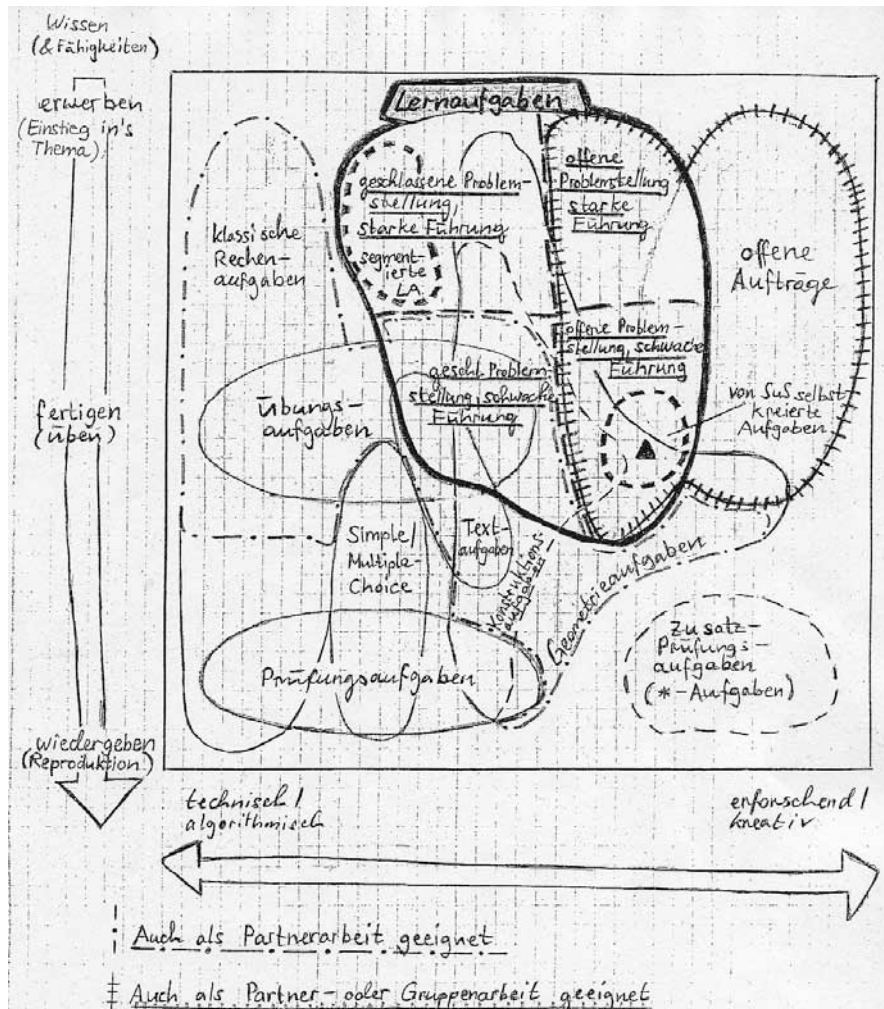 Wissen
(& Fähigkeiten)
erwerben
(Einstieg in's
Thema)
fertigen
(üben)
wiedergeben
(Reproduktion)
Lernaufgaben
geschlossene Problem-
stellung,
starke Führung
segment-
ierte
L.A.
offene
Problemstellung
starke
Führung
klassische
Rechen-
aufgaben
offene
Aufträge
offene Problem-
stellung, schwache
Führung
geschl. Problem-
stellung, schwache
Führung
von SuS selbst
kreierte
Aufgaben
Übungs-
aufgaben
Simple/
Multiple-
Choice
Text-
aufgaben
Konstruktions-
aufgaben
Geometrieaufgaben
Zusatz-
Prüfungs-
aufgaben
(*-Aufgaben)
Prüfungsaufgaben
technisch/
algorithmisch
erforschend/
kreativ
Auch als Partnerarbeit geeignet
Auch als Partner- oder Gruppenarbeit geeignet